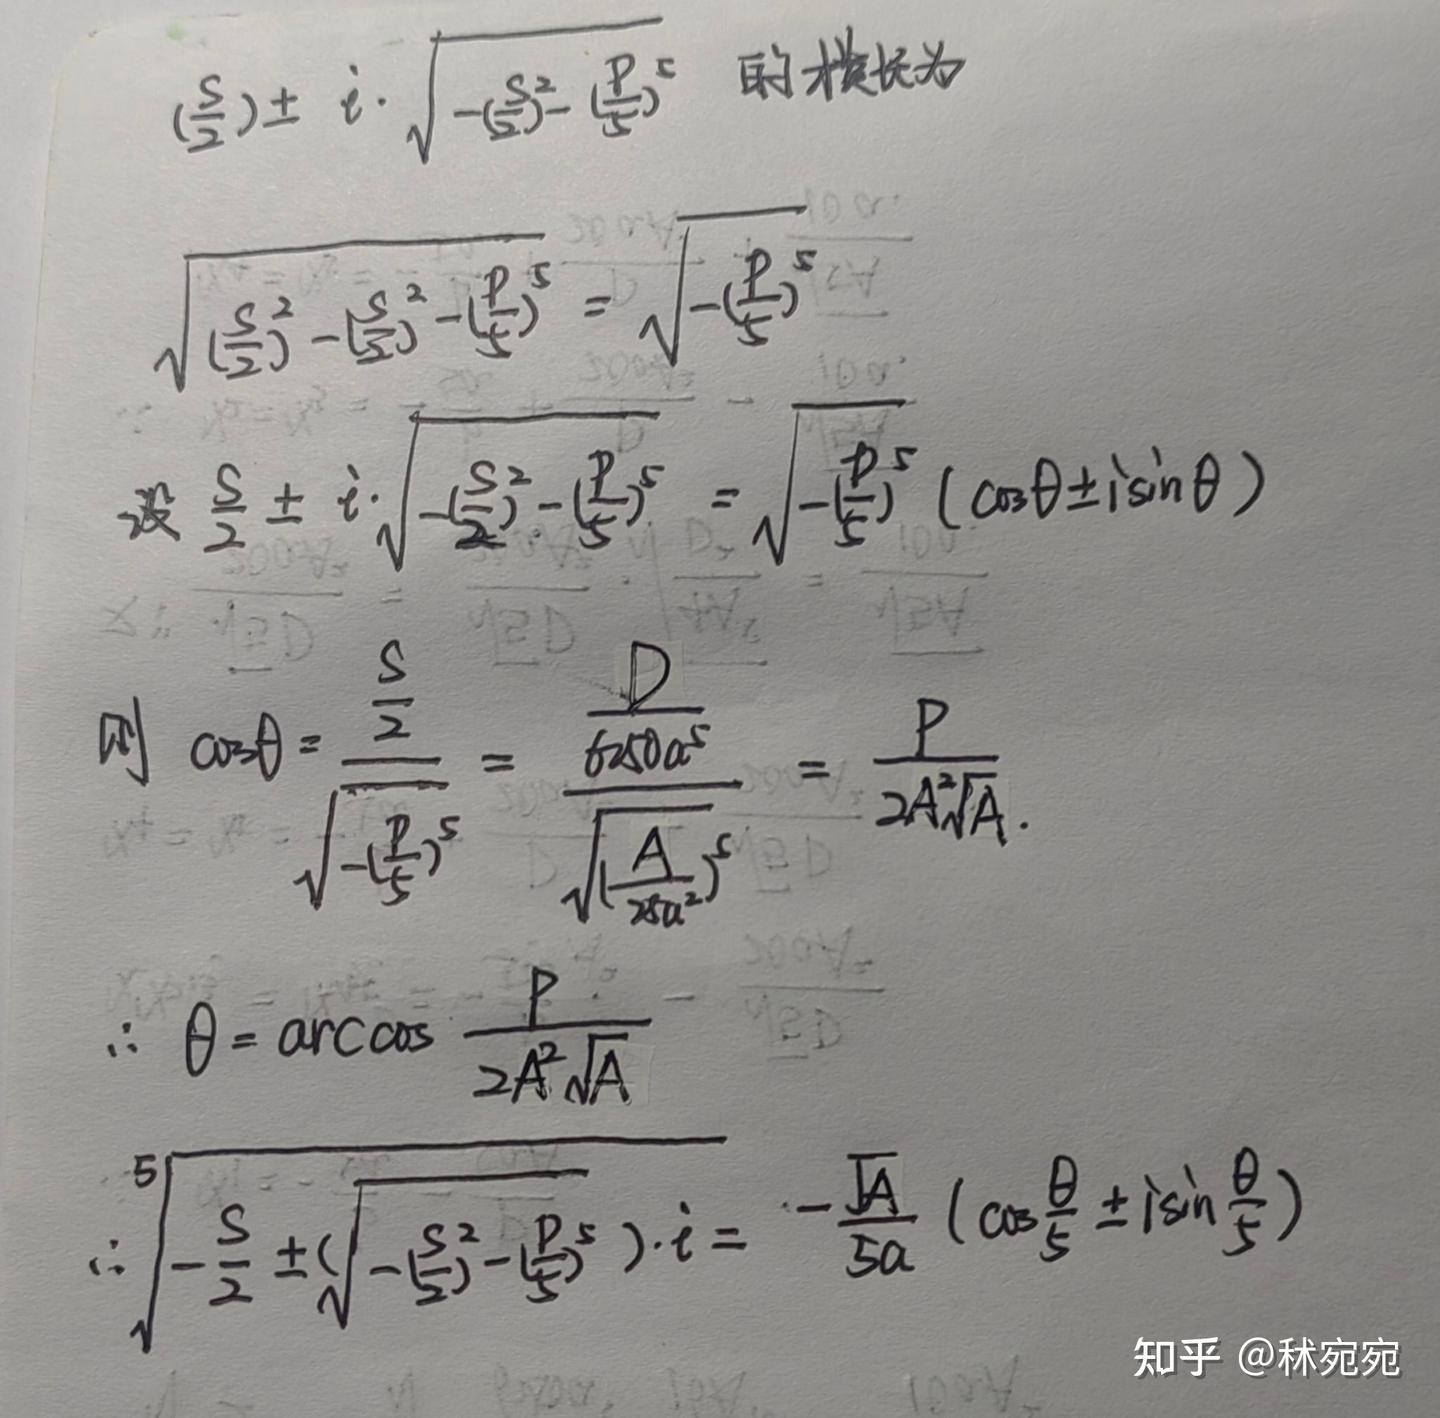 (S/2) ± i·√(-(S/2)² - (P/5)⁵) 的模长为
√((S/2)² - (S/2)² - (P/5)⁵) = √(-(P/5)⁵)
设 S/2 ± i·√(-(S/2)² - (P/5)⁵) = √(-(P/5)⁵) (cosθ ± i sinθ)
则 cosθ = (S/2)/√(-(P/5)⁵) = (D/6250a⁵)/√((A/25a²)⁵) = P/(2A²√A).
∴ θ = arccos P/(2A²√A)
∴ ⁵√(-S/2 ± (√(-(S/2)² - (P/5)⁵))·i) = -√A/5a (cos θ/5 ± i sin θ/5)
知乎 @秫宛宛